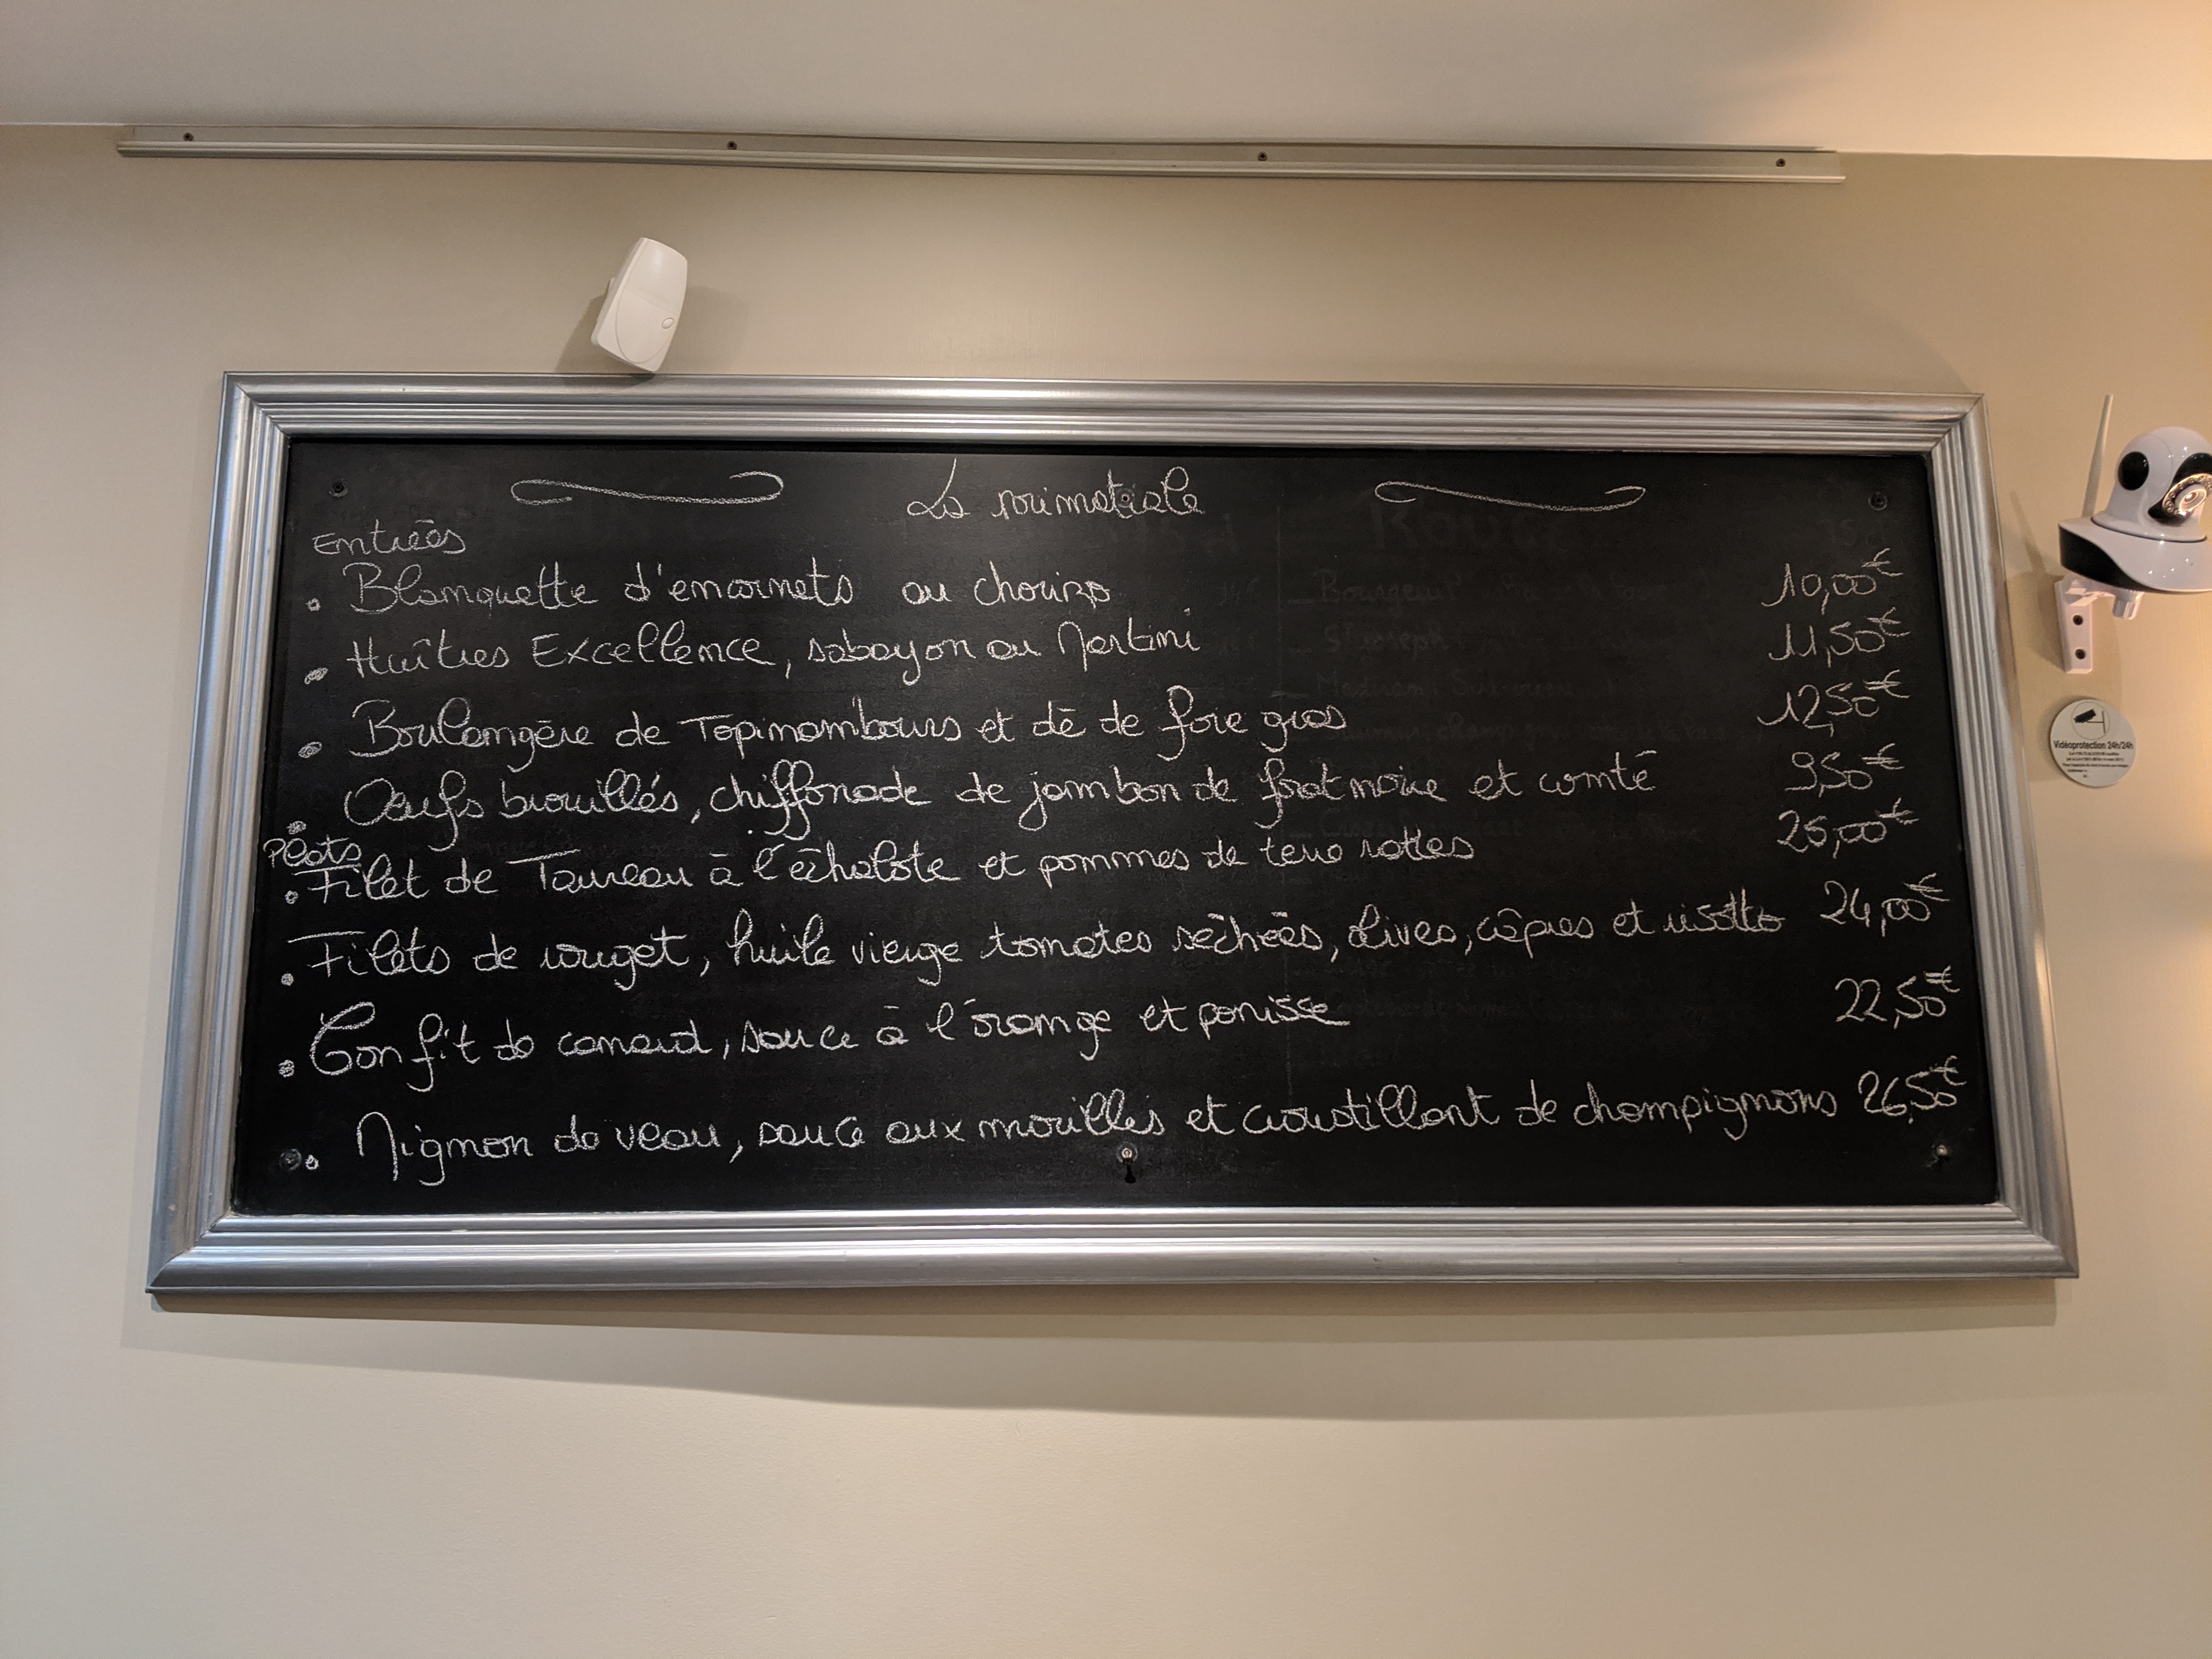 La
Entrées
• Blanquette d'encornets au chorizo 10,00€
• Huîtres Excellence, sabayon au Martini 11,50€
• Boulangère de Topinambours et dé de foie gras 12,50€
• Oeufs brouillés, chiffonade de jambon de et comté 9,50€
Plats
• Filet de Taureau à l'échalote et pommes de terre rattes 25,00€
• Filets de rouget, huile vierge tomates séchées, olives, câpres et risotto 24,00€
• Confit de canard, sauce à l'orange et panisse 22,50€
• Mignon de veau, sauce aux morilles et croustillant de champignons 26,50€
Vidéoprotection 24h/24h